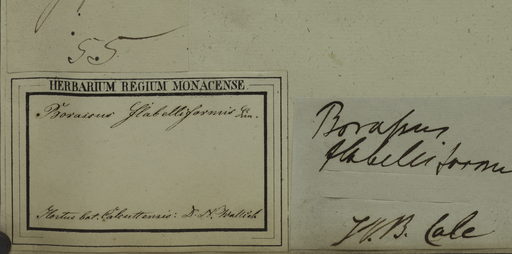 55
HERBARIUM REGIUM MONACENSE.
Borassus flabelliformis Lin.
Hortus bot. Calcuttensis: D. N. Wallich
Borassus
flabelliformis
H. B. Calc